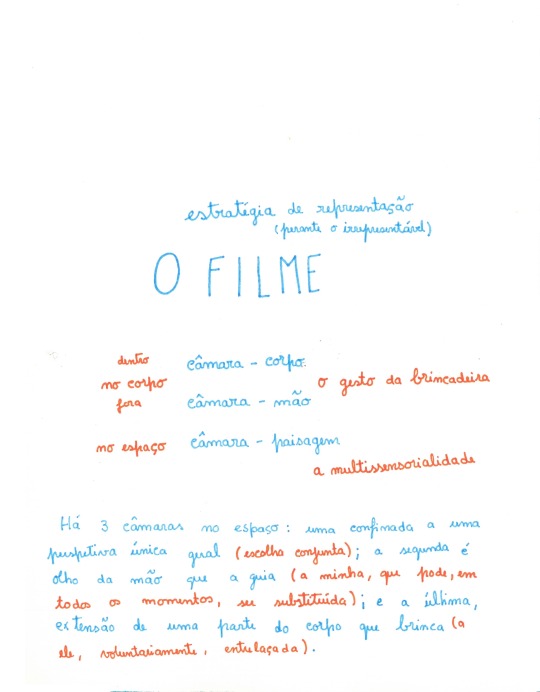 estratégia de representação
(perante o irrepresentável)
O FILME
dentro
câmara - corpo:
no corpo
o gesto da brincadeira
fora
câmara - mão
no espaço
câmara - paisagem
a multissensorialidade
Há 3 câmaras no espaço: uma confinada a uma
perspetiva única geral (escolha conjunta); a segunda é
olho da mão que a guia (a minha, que pode, em
todos os momentos, ser substituída); e a última,
extensão de uma parte do corpo que brinca (a
ele, voluntariamente, entrelaçada).